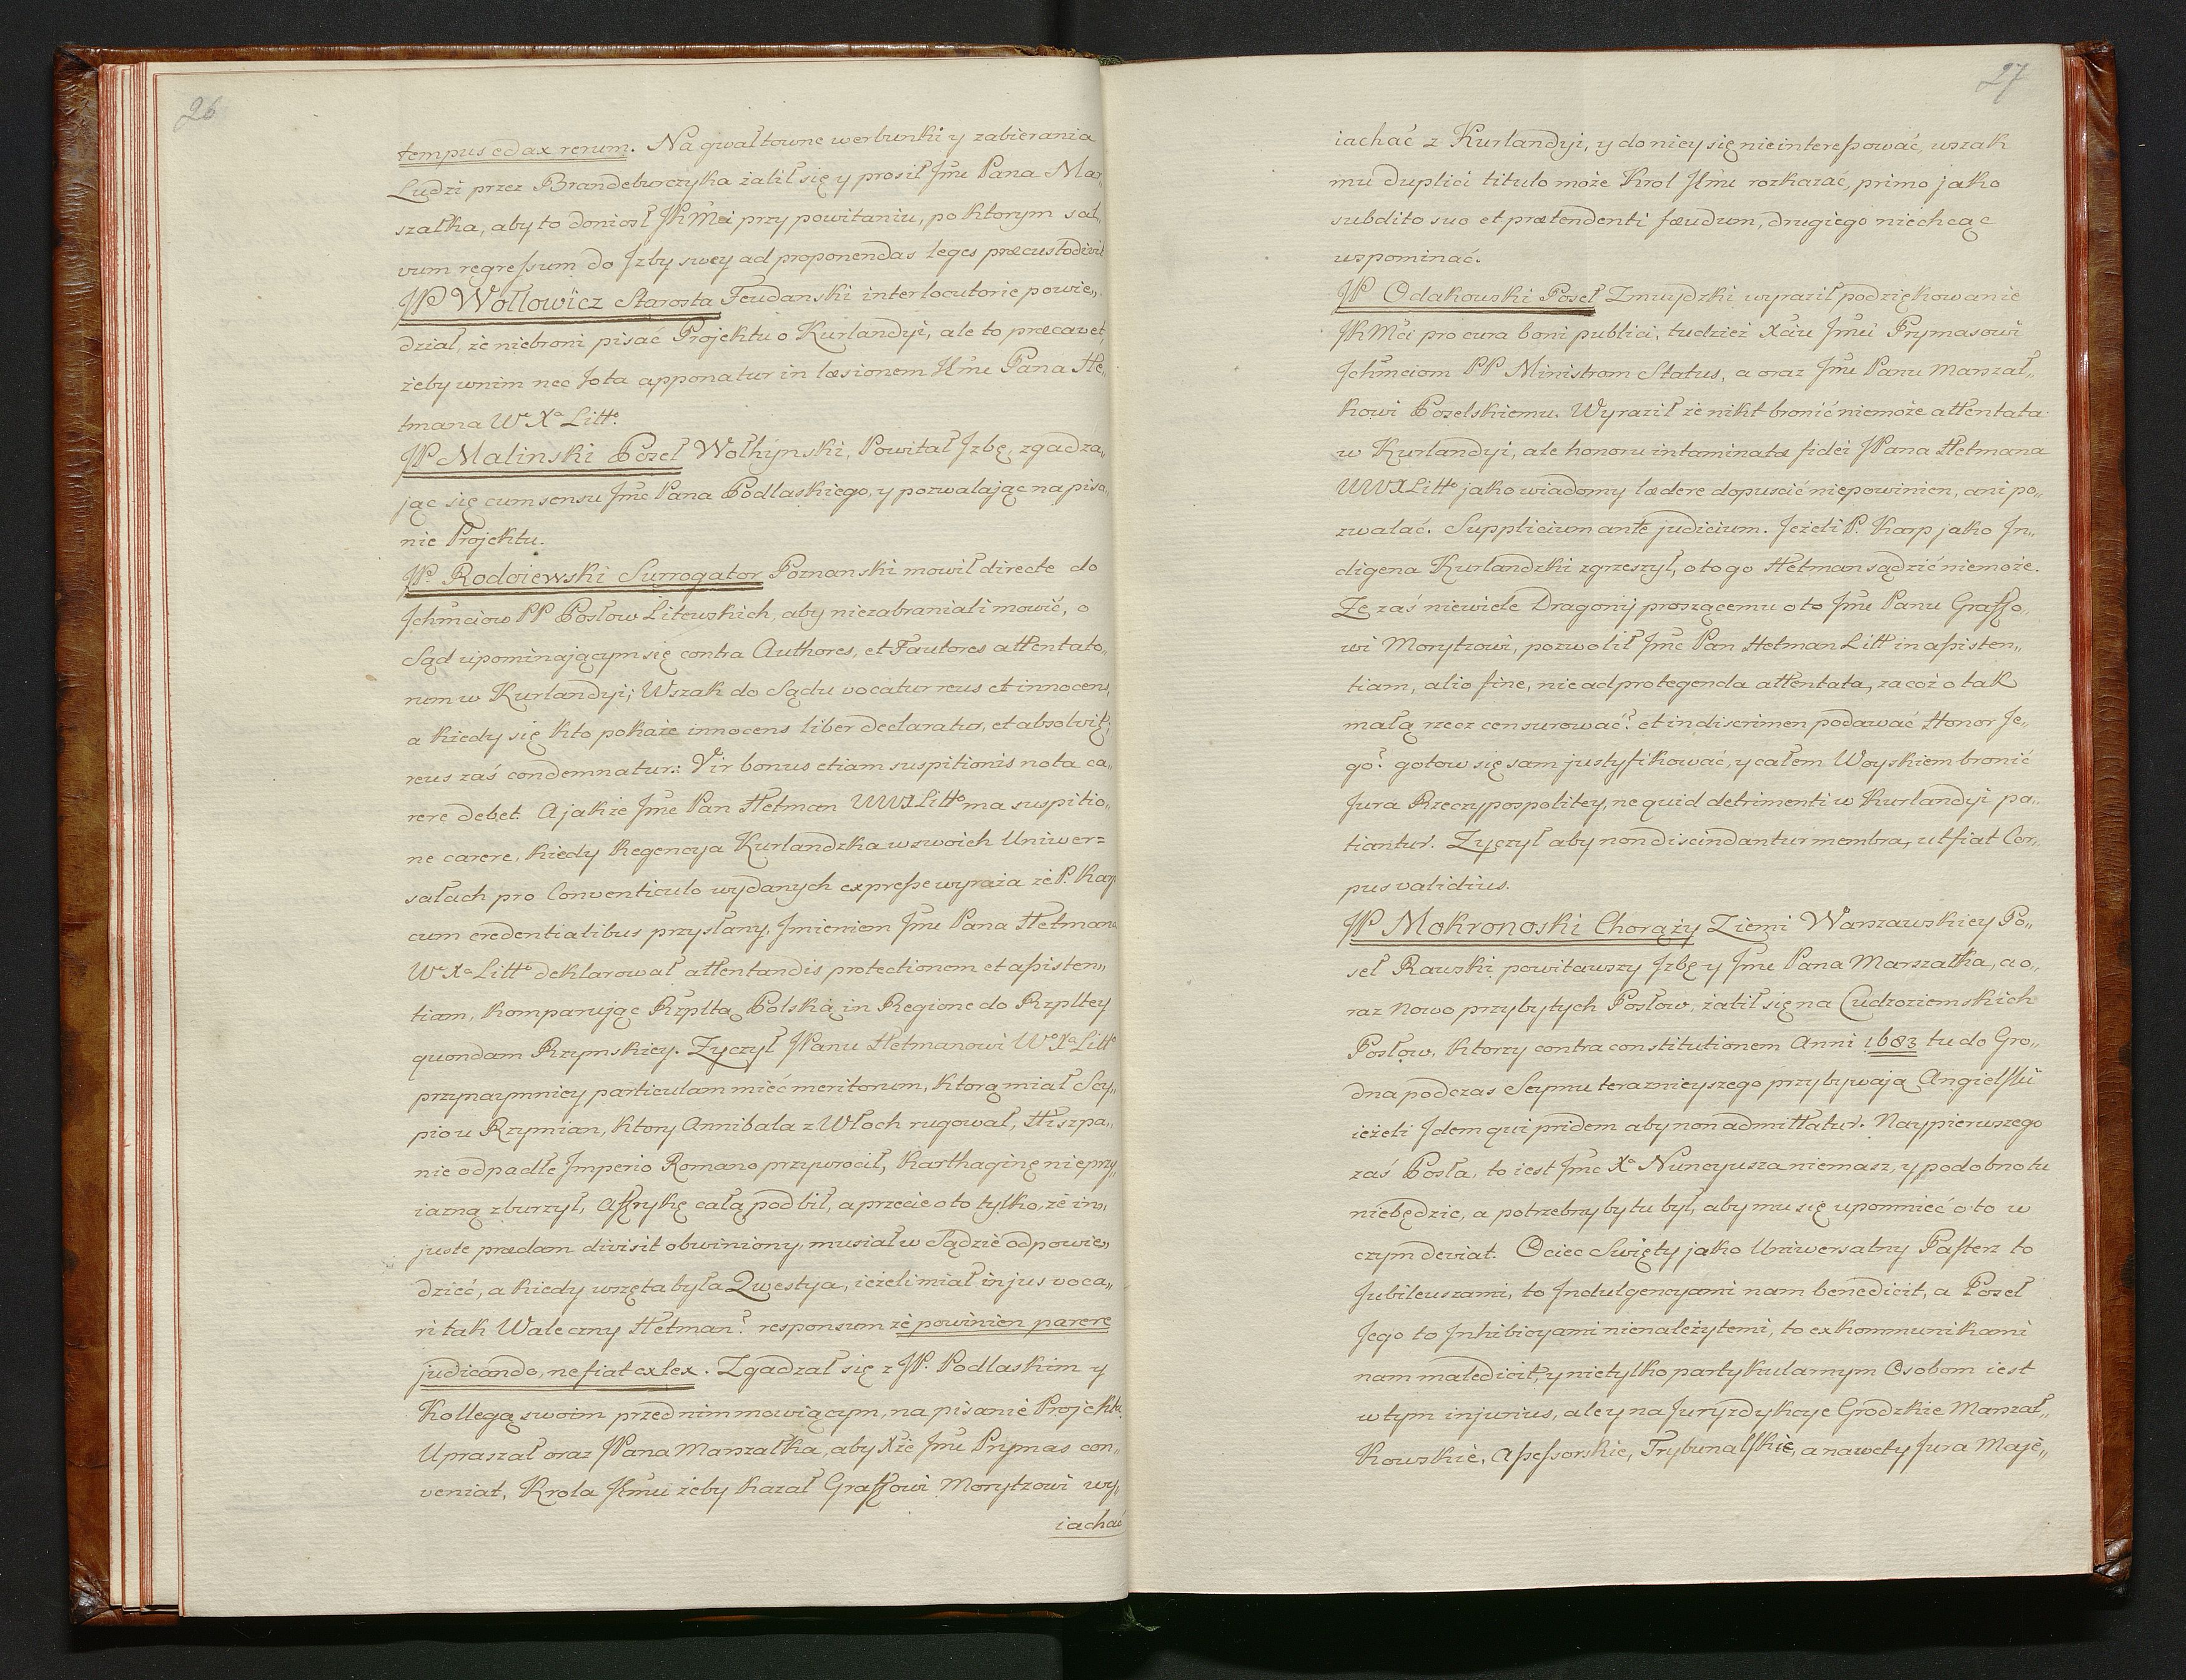 26
tempus edax rerum. Na gwałtowne werbunki y zabierania
Ludzi przez Brandeburczyka żalił się y prosił Jmć Pana Mar„
szałka, aby to doniosł JKMci przy powitaniu, po ktorym sal„
vum regressum do Jzby swey ad proponendas leges præcustodivit
JP Wołłowicz Starosta Feudanski interlocutorie powie„
dział, że niebroni pisać Projektu o Kurlandyi, ale to præcavet,
żeby wnim nec Jota apponatur in læsionem Jmć Pana He„
tmana Wº Xª Littº
JP Malinski Poseł Wołhynski, Powitał Jzbę, zgadza„
jąc się cum sensu Jmć Pana Podlaskiego, y pozwalając na pisa„
nie Projektu.
JP. Rodoiewski Surrogator Poznanski mowił directe do
Jchmciow PP Posłow Litewskich, aby niezabraniali mowić, o
Sąd upominającym się contra Authores, et Fautores attentato„
rum w Kurlandyi; Wszak do Sądu vocatur reus et innocens,
a kiedy się kto pokaże innocens liber declaratur, et absolvit;
reus zaś condemnatur: Vir bonus etiam suspitionis nota ca„
rere debet. A jakże Jmć Pan Hetman WWXLittº ma suspitio„
ne carere, kiedy Regencya Kurlandzka w swoich Uniwer=
sałach pro Conventiculo wydanych expresse wyraża że P. Karp
cum credentialibus przysłany, Jmieniem Jmć Pana Hetmana
Wº Xª Littº deklarował attentandis protectionem et assisten„
tiam, komparując Rzpltą Polską in Regione do Rzpltey
quondam Rzymskiey. Zyczył JPanu Hetmanowi Wº Xª Littº
przynaymniey particulam mieć meritorum, ktorą miał Scy„
pio u Rzymian, ktory Annibala z Włoch rugował, Hiszpa„
nie odpadłe Jmperio Romano przywrocił, Karthaginę nieprzy„
iazną zburzył, Affrykę całą podbił, a przecie oto tylko, że in„
juste prædam divisit obwiniony, musiał w Sądzie odpowie„
dzieć, a kiedy wszęta była Qwestya, ieżeli miał in jus voca„
ri tak Waleczny Hetman? responsum że powinien parere
judicando, ne fiat exlex. Zgadzał się z JP. Podlaskim y
Kollegą swoim przed nim mowiącym, na pisanie Projektu.
Upraszał oraz JPana Marszałka, aby Xże Jmć Prymas con„
veniat, Krola Jmci żeby kazał Graffowi Morytzowi wy„
iachać
27
iachać z Kurlandyi, y do niey się nieinteressować, wszak
mu duplici titulo może Krol Jmć rozkazać, primo jako
subdito suo et prætendenti fæudum, drugiego niechcąc
wspominać.
JP Odakowski Poseł Zmuydzki wyraził podziękowanie
JKMci pro cura boni publici, tudzież Xciu Jmci Prymasowi
Jchmciom PP Ministrom Status, a oraz Jmć Panu Marszał„
kowi Poselskiemu. Wyraził że nikt bronić niemoże attentata
w Kurlandyi, ale honoru intaminatæ fidei JPana Hetmana
WWXLittº jako wiadomy lædere dopuscić niepowinien, ani po„
zwalać. Supplicium ante judicium. Jeżeli P. Karp jako Jn„
digena Kurlandzki zgrzeszył, o to go Hetman sądzić niemoże.
Ze zaś niewiele Dragonij proszącemu o to Jmć Panu Graffo„
wi Morytzowi, pozwolił Jmć Pan Hetman Litt in assisten„
tiam, alio fine, nie ad protegenda attentata, za coż o tak
małą rzecz censurować? et in discrimen podawać Honor Je„
go? gotow się sam justyfikować, y całem Woyskiem bronić
Jura Rzeczypospolitey, ne quid detrimenti w Kurlandyi pa„
tiantur. Zyczył aby non discindantur membra, ut fiat Cor„
pus validius.
JP Mokronoski Chorąży Ziemi Warszawskiey Po„
seł Rawski powitawszy Jzbę y Jmć Pana Marszałka, a o„
raz Nowo przybytych Posłow, żalił się na Cudzoziemskich
Posłow, ktorzy contra constitutionem Anni 1683 tu do Gro„
dna podczas Seymu teraznieyszego przybywają Angielski
ieżeli Jdem qui pridem aby non admittatur. Naypierwszego
zaś Posła, to iest Jmć Xª Nuncyusza niemasz, y podobno tu
niebędzie, a potrzebny by tu był, aby mu się upomnieć o to w
czym deviat. Ociec Swięty jako Uniwersalny Pasterz to
Jubileuszami, to Jndulgencyami nam benedicit, a Poseł
Jego to Jnhibicyami nienależytemi, to exkommunikami
nam maledicit, y nietylko partykularnym Osobom iest
w tym injurius, ale y na Juryzdykcye Grodzkie Marszał„
kowskie, Assessorskie, Trybunalskie, a nawet y Jura Maje„